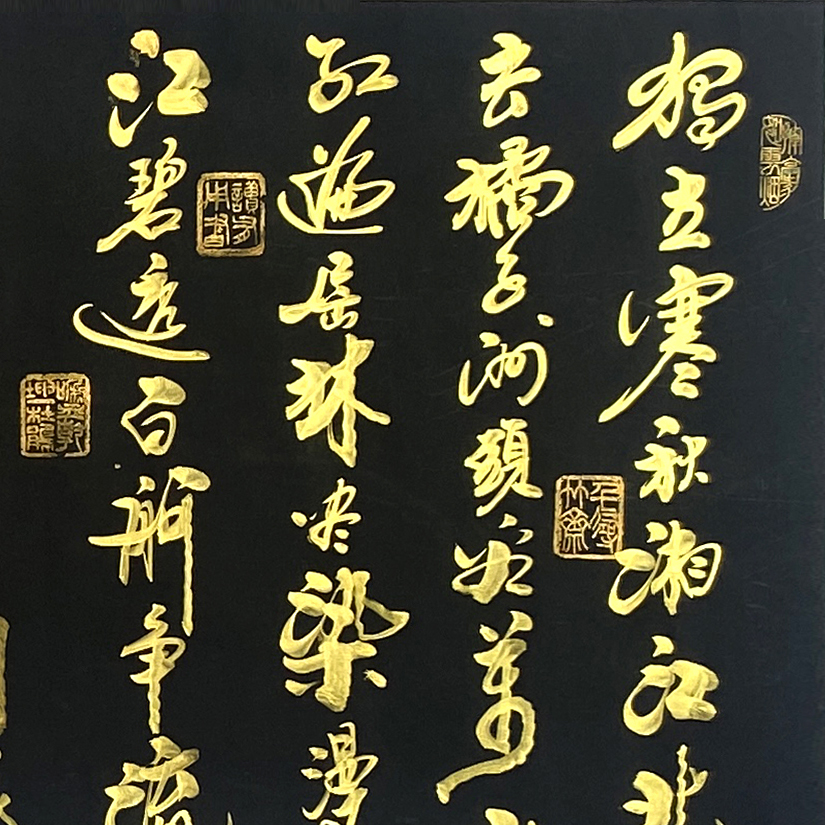 獨立寒秋湘江北
去橘子洲頭看萬
红遍层林尽染漫
江碧透百舸争流